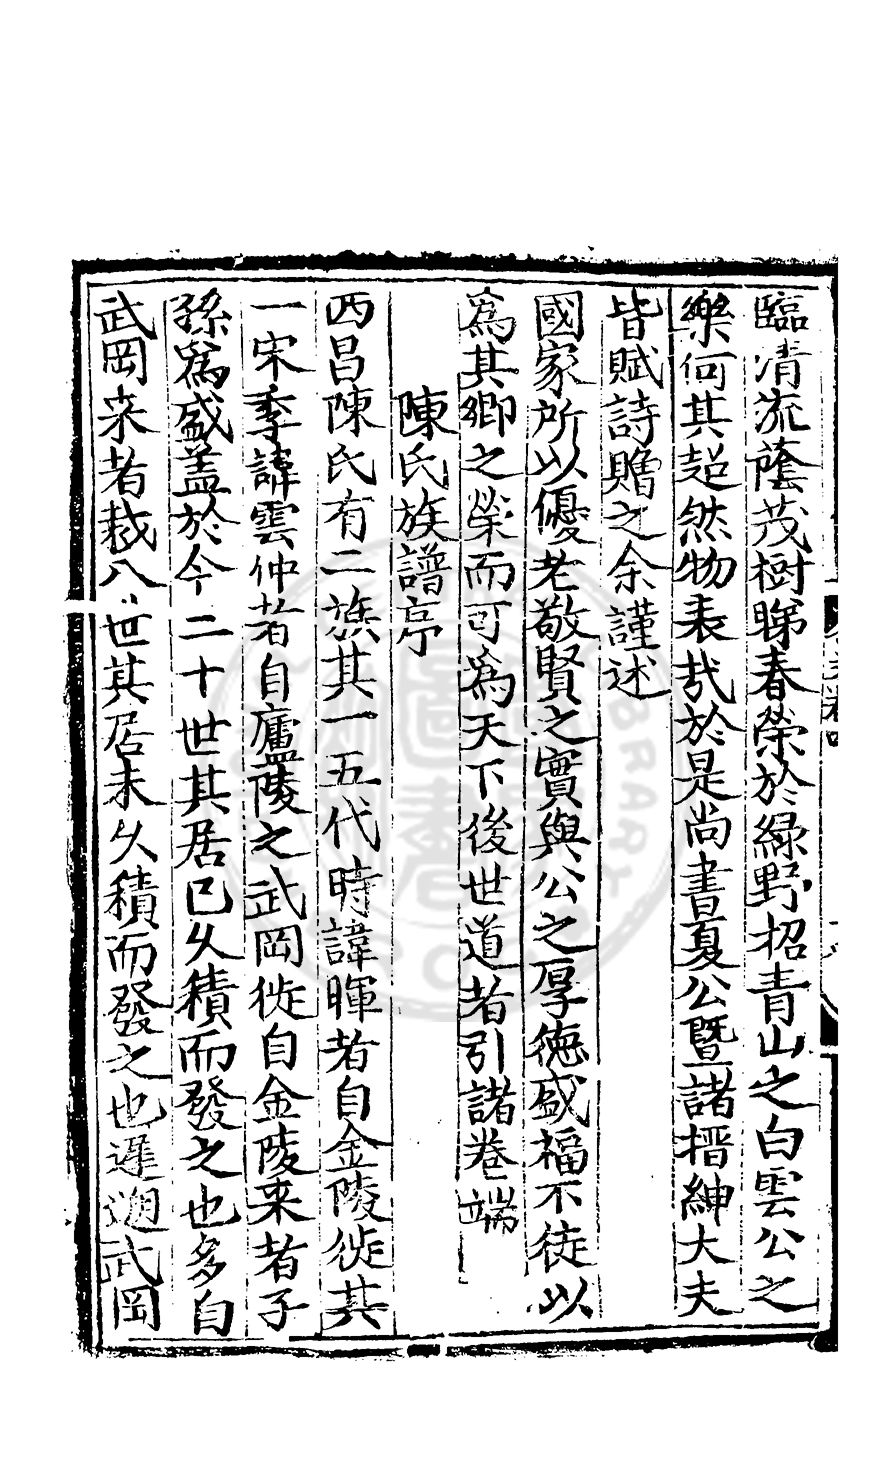 臨清流蔭茂樹睇春榮於緑野招青山之白雲公之
樂何其超然物表哉於是尚書夏公暨諸搢紳大夫
皆賦詩贈之余謹述
國家所以優老敬賢之實與公之厚德盛福不徒以
爲其鄉之榮而可爲天下後世道者引諸卷端
陳氏族譜序
西昌陳氏有二族其一五代時諱暉者自金陵徙其
一宋季諱雲仲者自廬陵之武岡徙自金陵来者子
孫爲盛盖於今二十世其居已久積而發之也多自
武岡来者裁八世其居未久積而發之也遲迺武岡